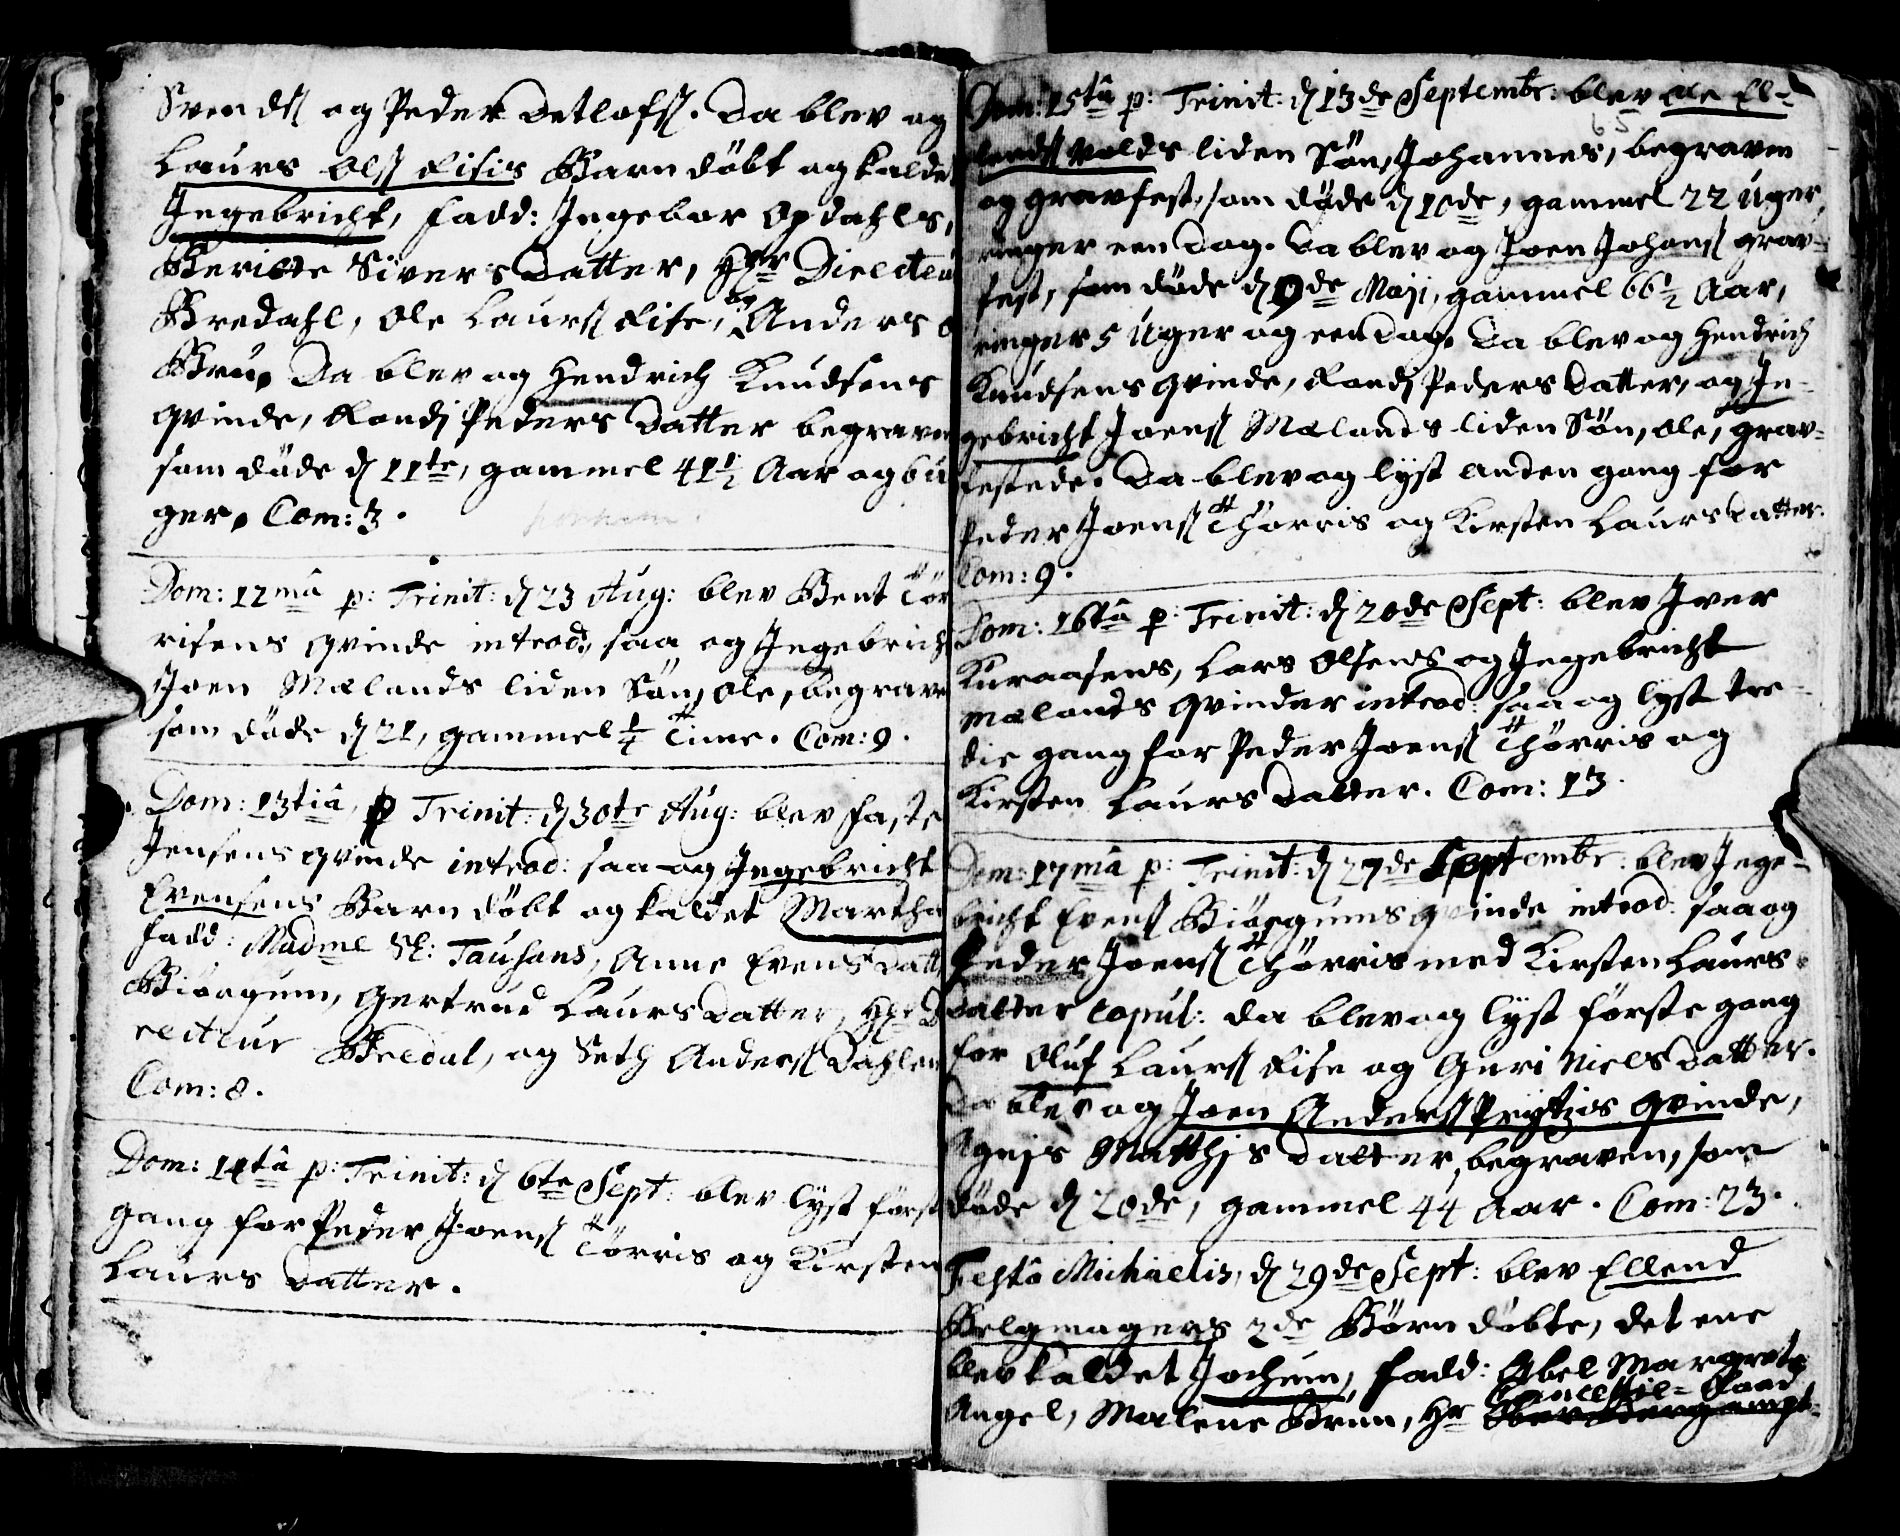 Svends: og Peder Detlofs:. Da blev og
Laurs Ols: Risis Barn döbt og kaldet
Ingebricht, fadd: Ingebor Opdahls,
Berithe Sivers Datter, Hr Directeur
Bredahl, Ole Laurs: Rise, og Anders
Bru. Da blev og Hendrich Knudsens
qvinde, Randj Peders Datter begraven
som döde d 11te, gammel 41½ Aar og 6 u
ger. Com: 3.
Dom: 12mâ p: Trinit: d 23 Aug: blev Bent Tör
risens qvinde introd:, saa og Ingebricht
Joen Mælands liden Sön, Ole, begraven
som döde d 21, gammel ¼ Time. Com: 9.
Dom: 13tiâ p Trinit: d 30te Aug: blev Faste
Jensens qvinde introd: saa og Ingebricht
Evensens Barn döbt og kaldet Martha
fadd: Madme Sl: Tausans, Anne Evens Datt
Biörgum, Gertrud Laurs Datter, Hr Di
recteur Bredal, og Seth Anders: Dahlen
Com: 8.
Dom: 14tâ p: Trinit: d 6te Sept: blev lyst först
gang for Peder Joens: Törris og Kirsten
Laurs Datter.
Dom: 15tâ p: Trinit: d 13de Septembr: blev Ole El-
65
lends: Volds liden Sön, Johannes, begraven
og gravfest, som döde d 10de, gammel 22 Uger,
ringer een Dag. Da blev og Joen Johans: grav-
fest, som döde d 9de Maji, gammel 66½ Aar,
ringer 5 Uger og een Dag. Da blev og Hendrich
Knudsens qvinde, Randj Peders Datter, og In-
gebricht Joens: Mælands liden Sön, Ole, grav-
festede. Da blev og lyst anden gang for
Peder Joens: Thörris og Kirsten Laurs Datter.
Com: 9.
Dom: 16tâ p: Trinit: d 20de Sept: blev Iver
Kuraasens, Lars Olsens og Ingebricht
Mælands qvinder introd: saa og lyst tre-
die gang for Peder Joens: Thörris og
Kirsten Laurs Datter. Com: 13.
Dom: 17mâ p: Trinit: d 27de Septembr: blev Inge-
bricht Evens: Biörgums qvinde introd: saa og
Peder Joens: Thörris med Kirsten Laurs-
Datter copul: da blev og lyst förste gang
for Oluf Laurs: Rise og Guri Niels Datter.
Da blev og Joen Anders: Prytzis qvinde,
Agnis Matthis Datter, begraven, som
döde d 20de, gammel 44 Aar. Com: 23.
Festo Michaelis, d 29de Sept: blev Ellend
Belgmagers 2de Börn döbte, det ene
blev kaldet Jochum, fadd: Abel Margrete
Angel, Malene Brun, Hr Cancellie-Raad